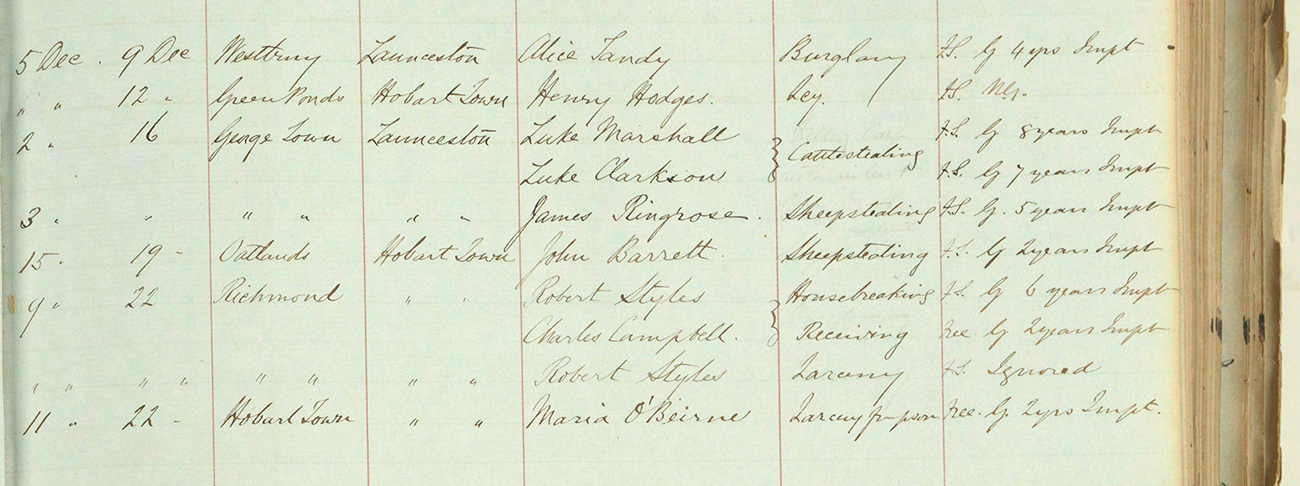 5 Dec. 9 Dec Westbury Launceston Alice Tandy Burglary F.S. G 4 yrs Impt
" " 12 " Green Ponds Hobart Town Henry Hodges. Lcy. F.S. N.G.
2 " 16 George Town Launceston Luke Marshall F.S. G 8 years Impt
Cattlestealing
Luke Clarkson F.S. G 7 years Impt
3 " " " " " " James Ringrose. Sheepstealing F.S. G. 5 years Impt
15 " 19 - Oatlands Hobart Town John Barrett. Sheepstealing F.S. G 2 years Impt
9 " 22 Richmond " " Robert Styles Housebreaking F.S. G 6 years Impt
Charles Campbell. Receiving Free. G 2 years Impt
" " " " " " " " Robert Styles Larceny F.S. Ignored
11 " 22 - Hobart Town " " Maria O'Beirne Larceny fm person Free. G. 2 yrs Impt.